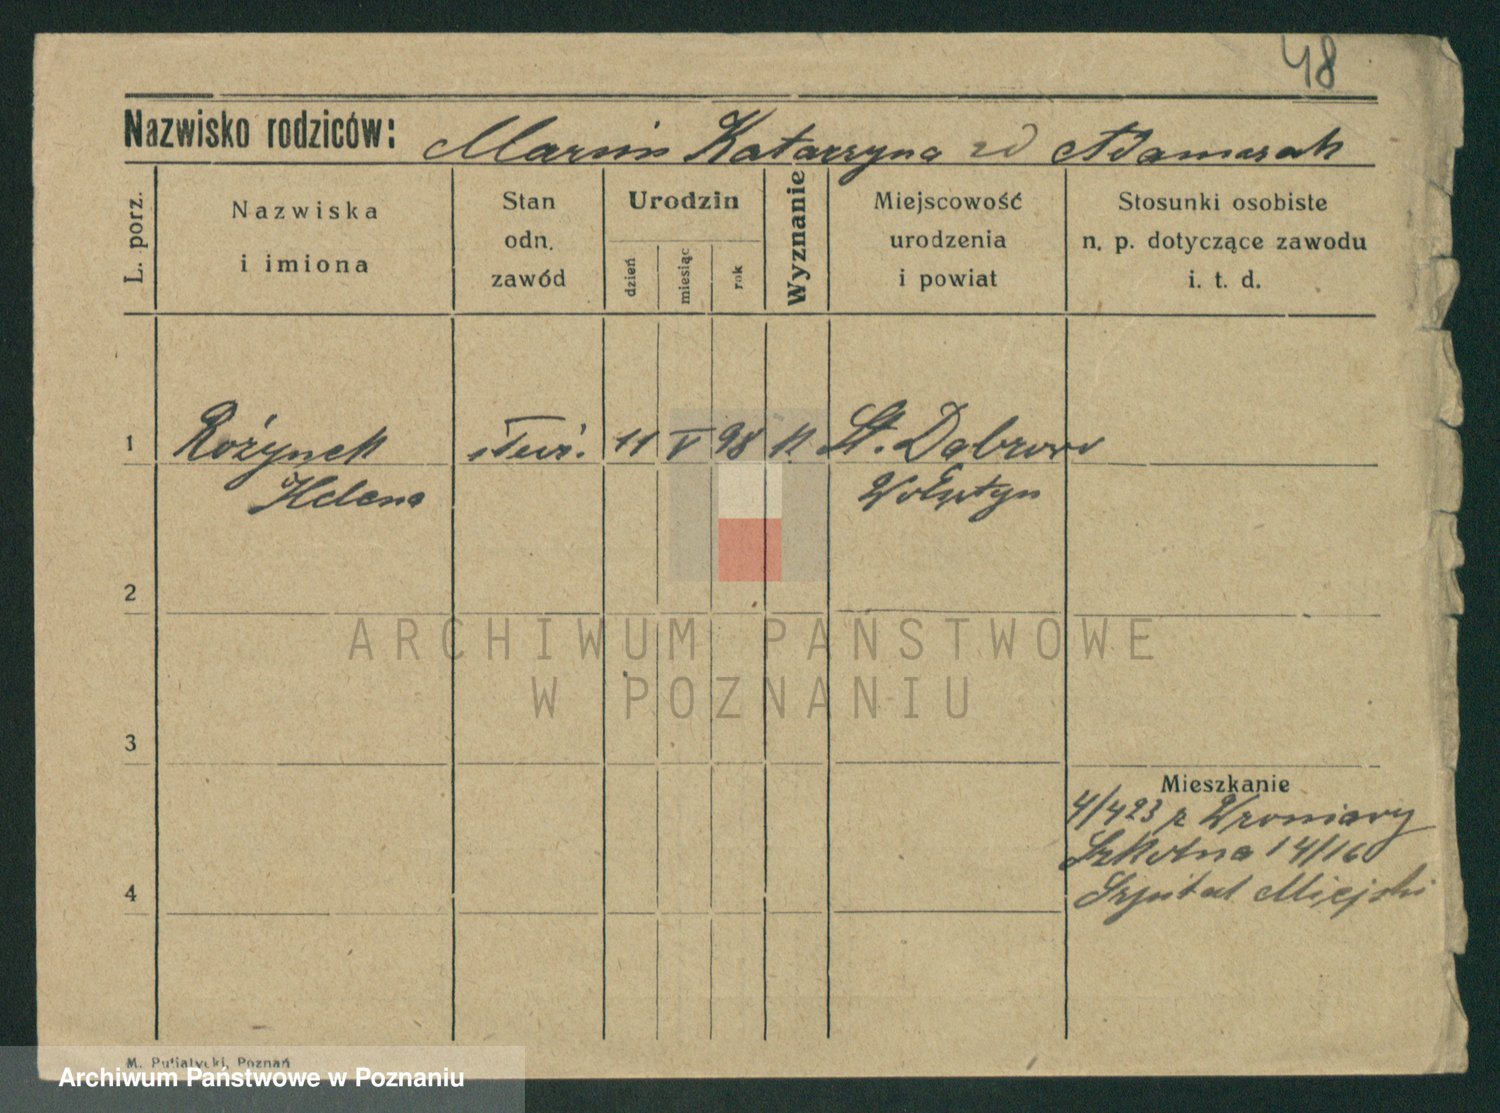 48
Nazwisko rodziców: Marcin Katarzyna zd Adamczak
L. porz.
Nazwiska
i imiona
Stan
odn.
zawód
Urodzin
dzień
miesiąc
rok
Wyznanie
Miejscowość
urodzenia
i powiat
Stosunki osobiste
n. p. dotyczące zawodu
i. t. d.
1 Rożynek służ. 11 V 98 k St. Dąbrowa
Helena Wolsztyn
2
ARCHIWUM PAŃSTWOWE
W POZNANIU
3
Mieszkanie
4/4 23 z Wroniawy
Szkolna 14/16
4 Szpital Miejski
M. Putiatycki, Poznań
Archiwum Państwowe w Poznaniu